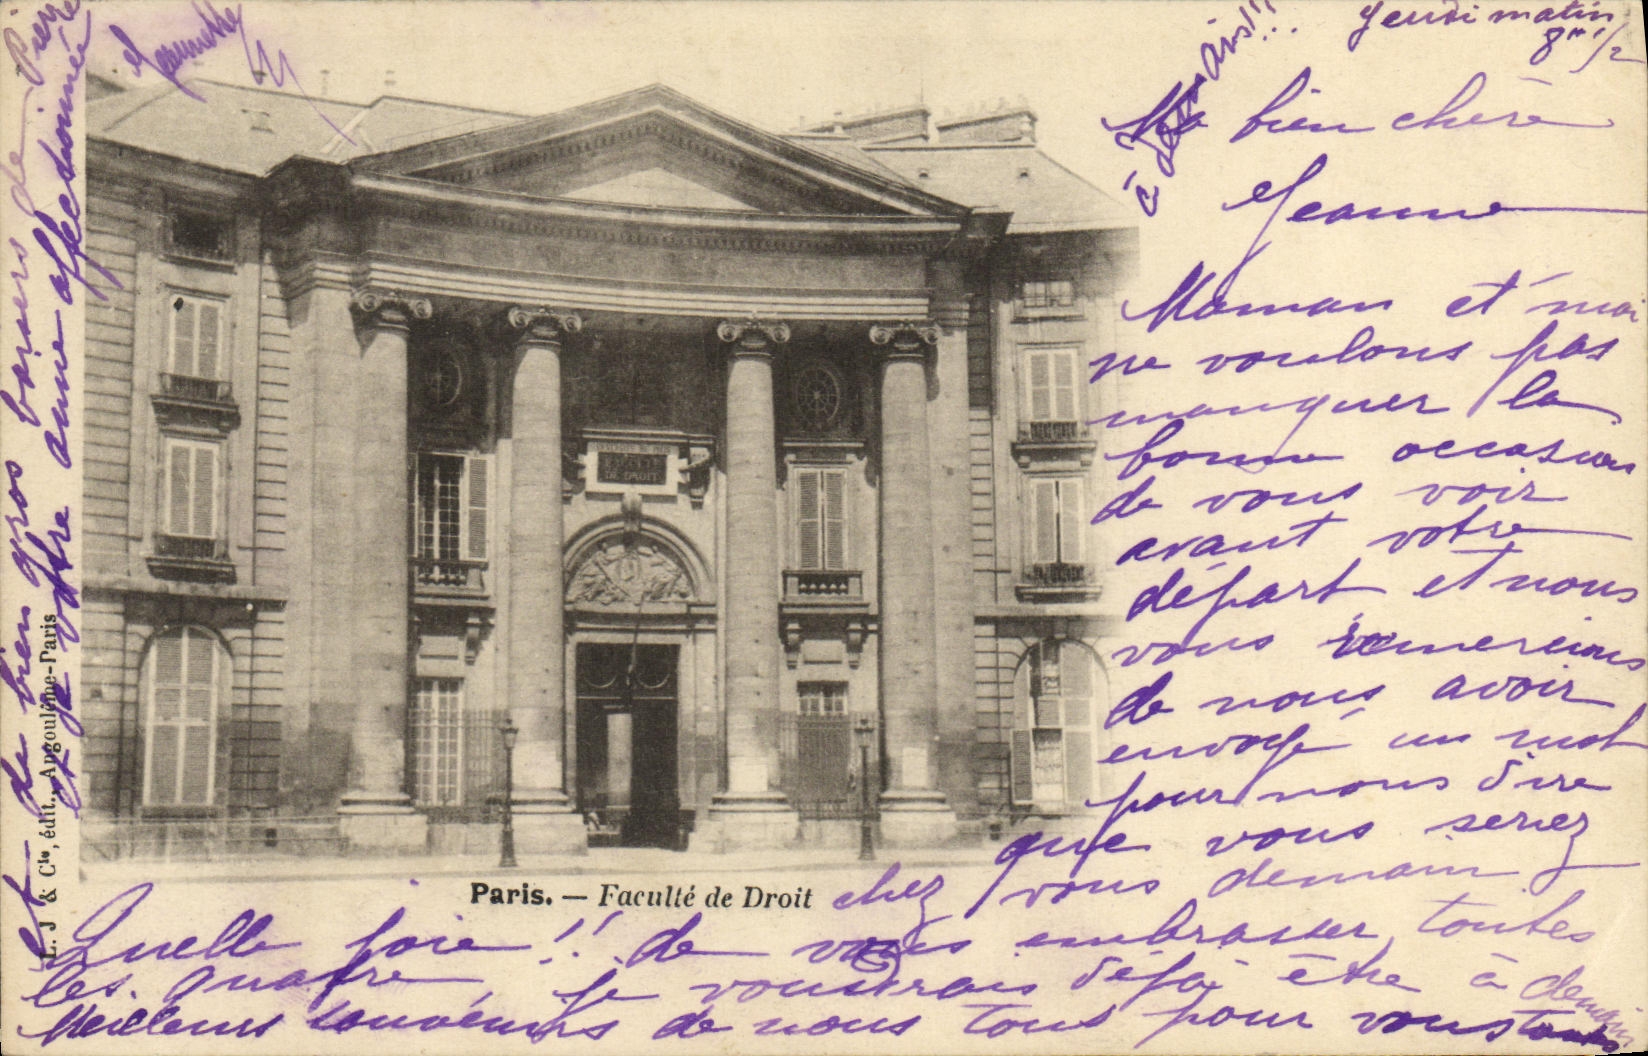 Jeudi matin
8h 1/2
Ma bien chère
Jeanne
Maman et moi
ne voulons pas
manquer la
bonne occasion
de vous voir
avant votre
départ et nous
vous remercions
de nous avoir
envoyé un mot
pour nous dire
que vous serez
chez vous demain
Quelle joie !! de vous embrasser toutes
les quatre, je voudrais déjà être à demain
Meilleurs souvenirs de nous tous pour vous toutes
et de bien gros baisers de Pierre
et de votre amie affectionnée
Jeannette
à demain!!!
FACULTÉ
DE DROIT
Paris. — Faculté de Droit
L. J & Cie, édit., Angoulême-Paris